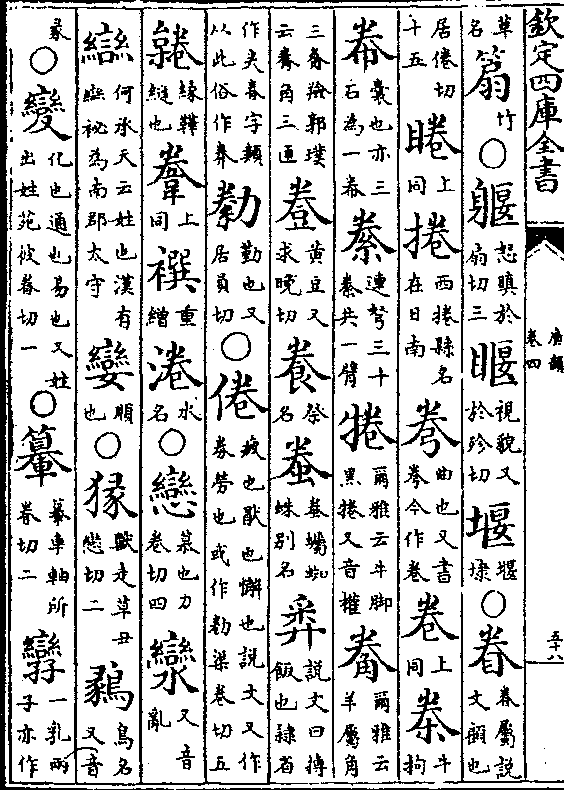 欽定四庫全書
廣韻
卷四
五十八
草名 竹○躽恕瞋於扇切三 視貌又於殄切堰堰埭○眷眷屬說文顧也
居倦切十五睠上同捲西捲縣名在日南弮曲也又書弮今作卷卷上同桊牛拘
帣囊也亦三石為一帣絭連弩三十絭共一臂犈爾雅云牛脚黑犈又音權觠爾雅云羊屬角
三觠羷郭璞云觠角三匝䇍黃豆又求晚切餋祭名 蛛別名 說文曰摶飯也隸省
作 舂字類从此俗作 勌勤也又居員切○倦疲也猒也懈也說文又作券勞也或作勌渠卷切五
緣鞾縫也韏上同襈重繒 水名○戀慕也力卷切四 又音亂
䜌何承天云姓也漢有䜌祕為南郡太守孌順也○猭獸走草丑戀切二鶨鳥名又音
彖○變化也通也易也又姓出姓苑彼眷切一○ 車軸所眷切二孿一乳兩子亦作